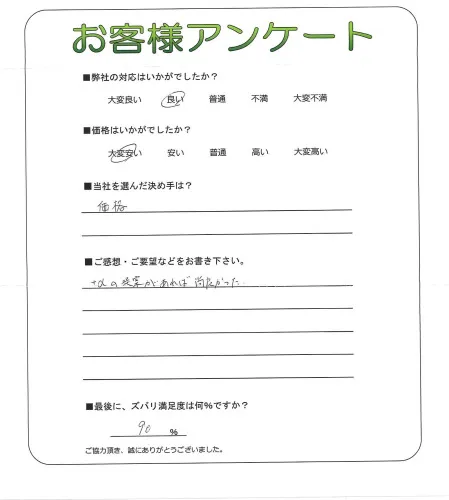 お客様アンケート
■弊社の対応はいかがでしたか？
大変良い 良い 普通 不満 大変不満
■価格はいかがでしたか？
大変安い 安い 普通 高い 大変高い
■当社を選んだ決め手は？
価格
■ご感想・ご要望などをお書き下さい。
+αの提案があれば尚良かった
■最後に、ズバリ満足度は何%ですか？
90 %
ご協力頂き、誠にありがとうございました。